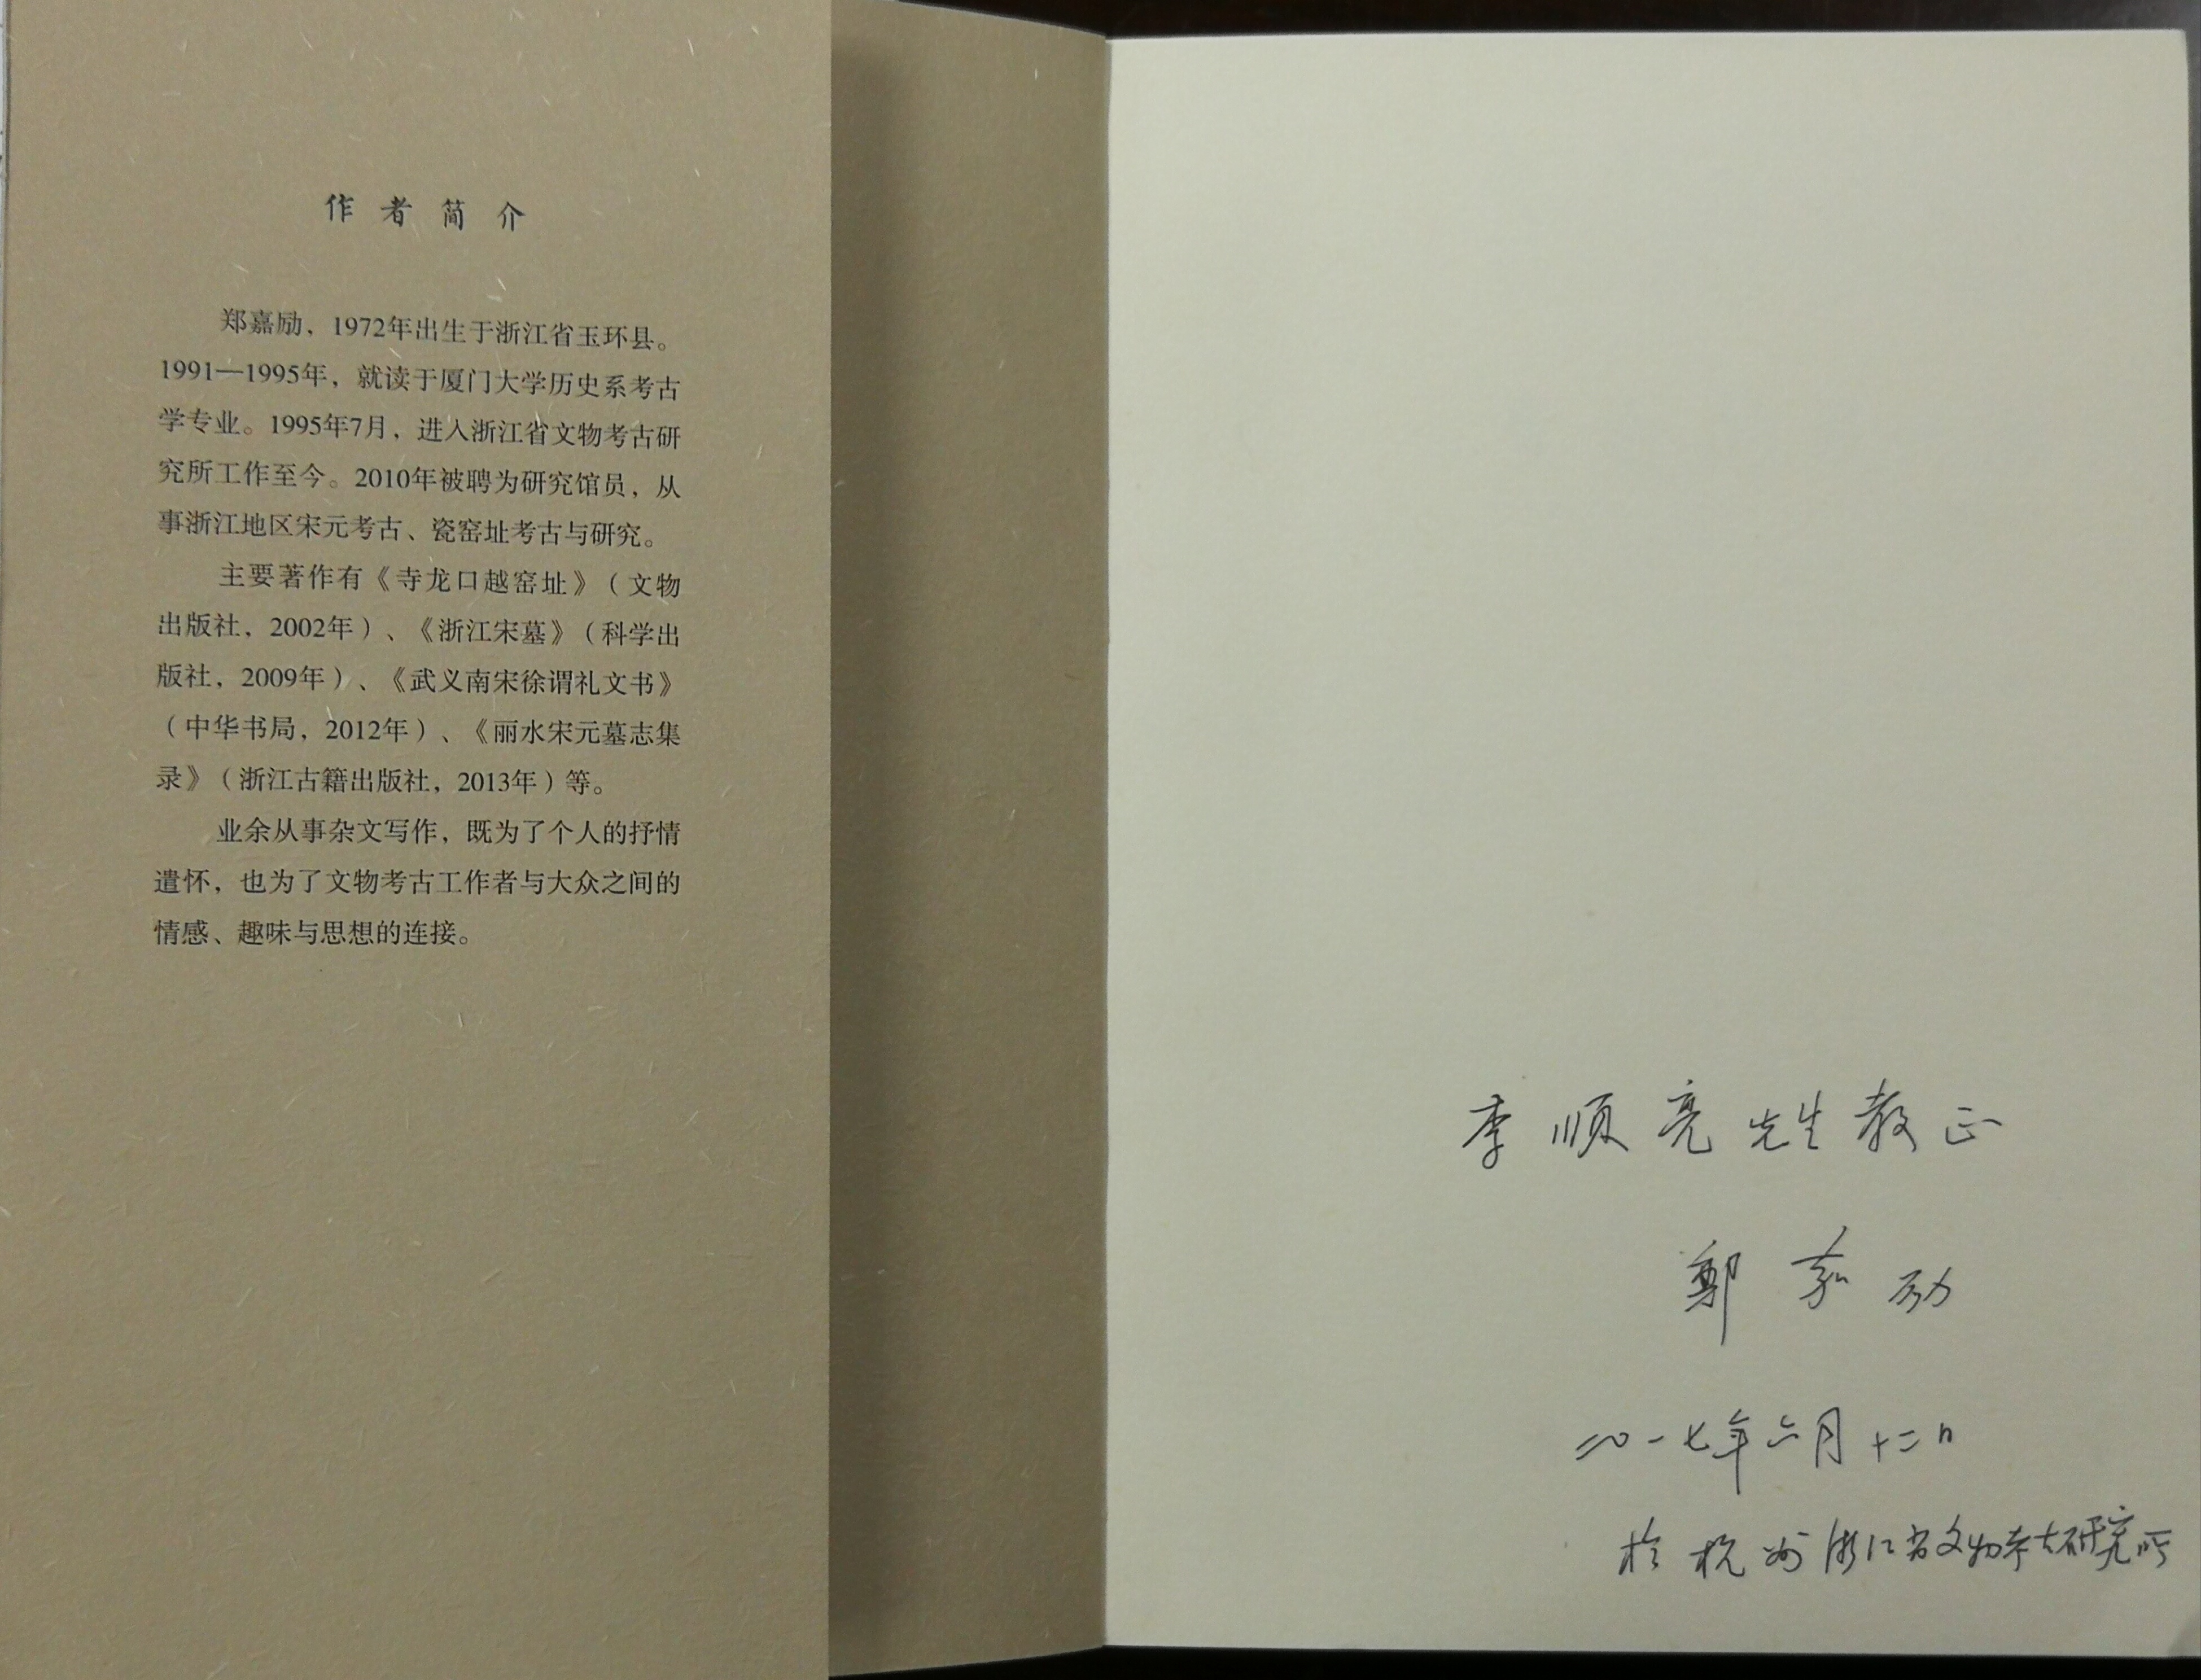 作者简介
郑嘉励，1972年出生于浙江省玉环县。
1991—1995年，就读于厦门大学历史系考古
学专业。1995年7月，进入浙江省文物考古研
究所工作至今。2010年被聘为研究馆员，从
事浙江地区宋元考古、瓷窑址考古与研究。
主要著作有《寺龙口越窑址》（文物
出版社，2002年）、《浙江宋墓》（科学出
版社，2009年）、《武义南宋徐谓礼文书》
（中华书局，2012年）、《丽水宋元墓志集
录》（浙江古籍出版社，2013年）等。
业余从事杂文写作，既为了个人的抒情
遣怀，也为了文物考古工作者与大众之间的
情感、趣味与思想的连接。
李顺亮先生教正
鄭嘉励
二〇一七年六月十二日
於杭州浙江省文物考古研究所